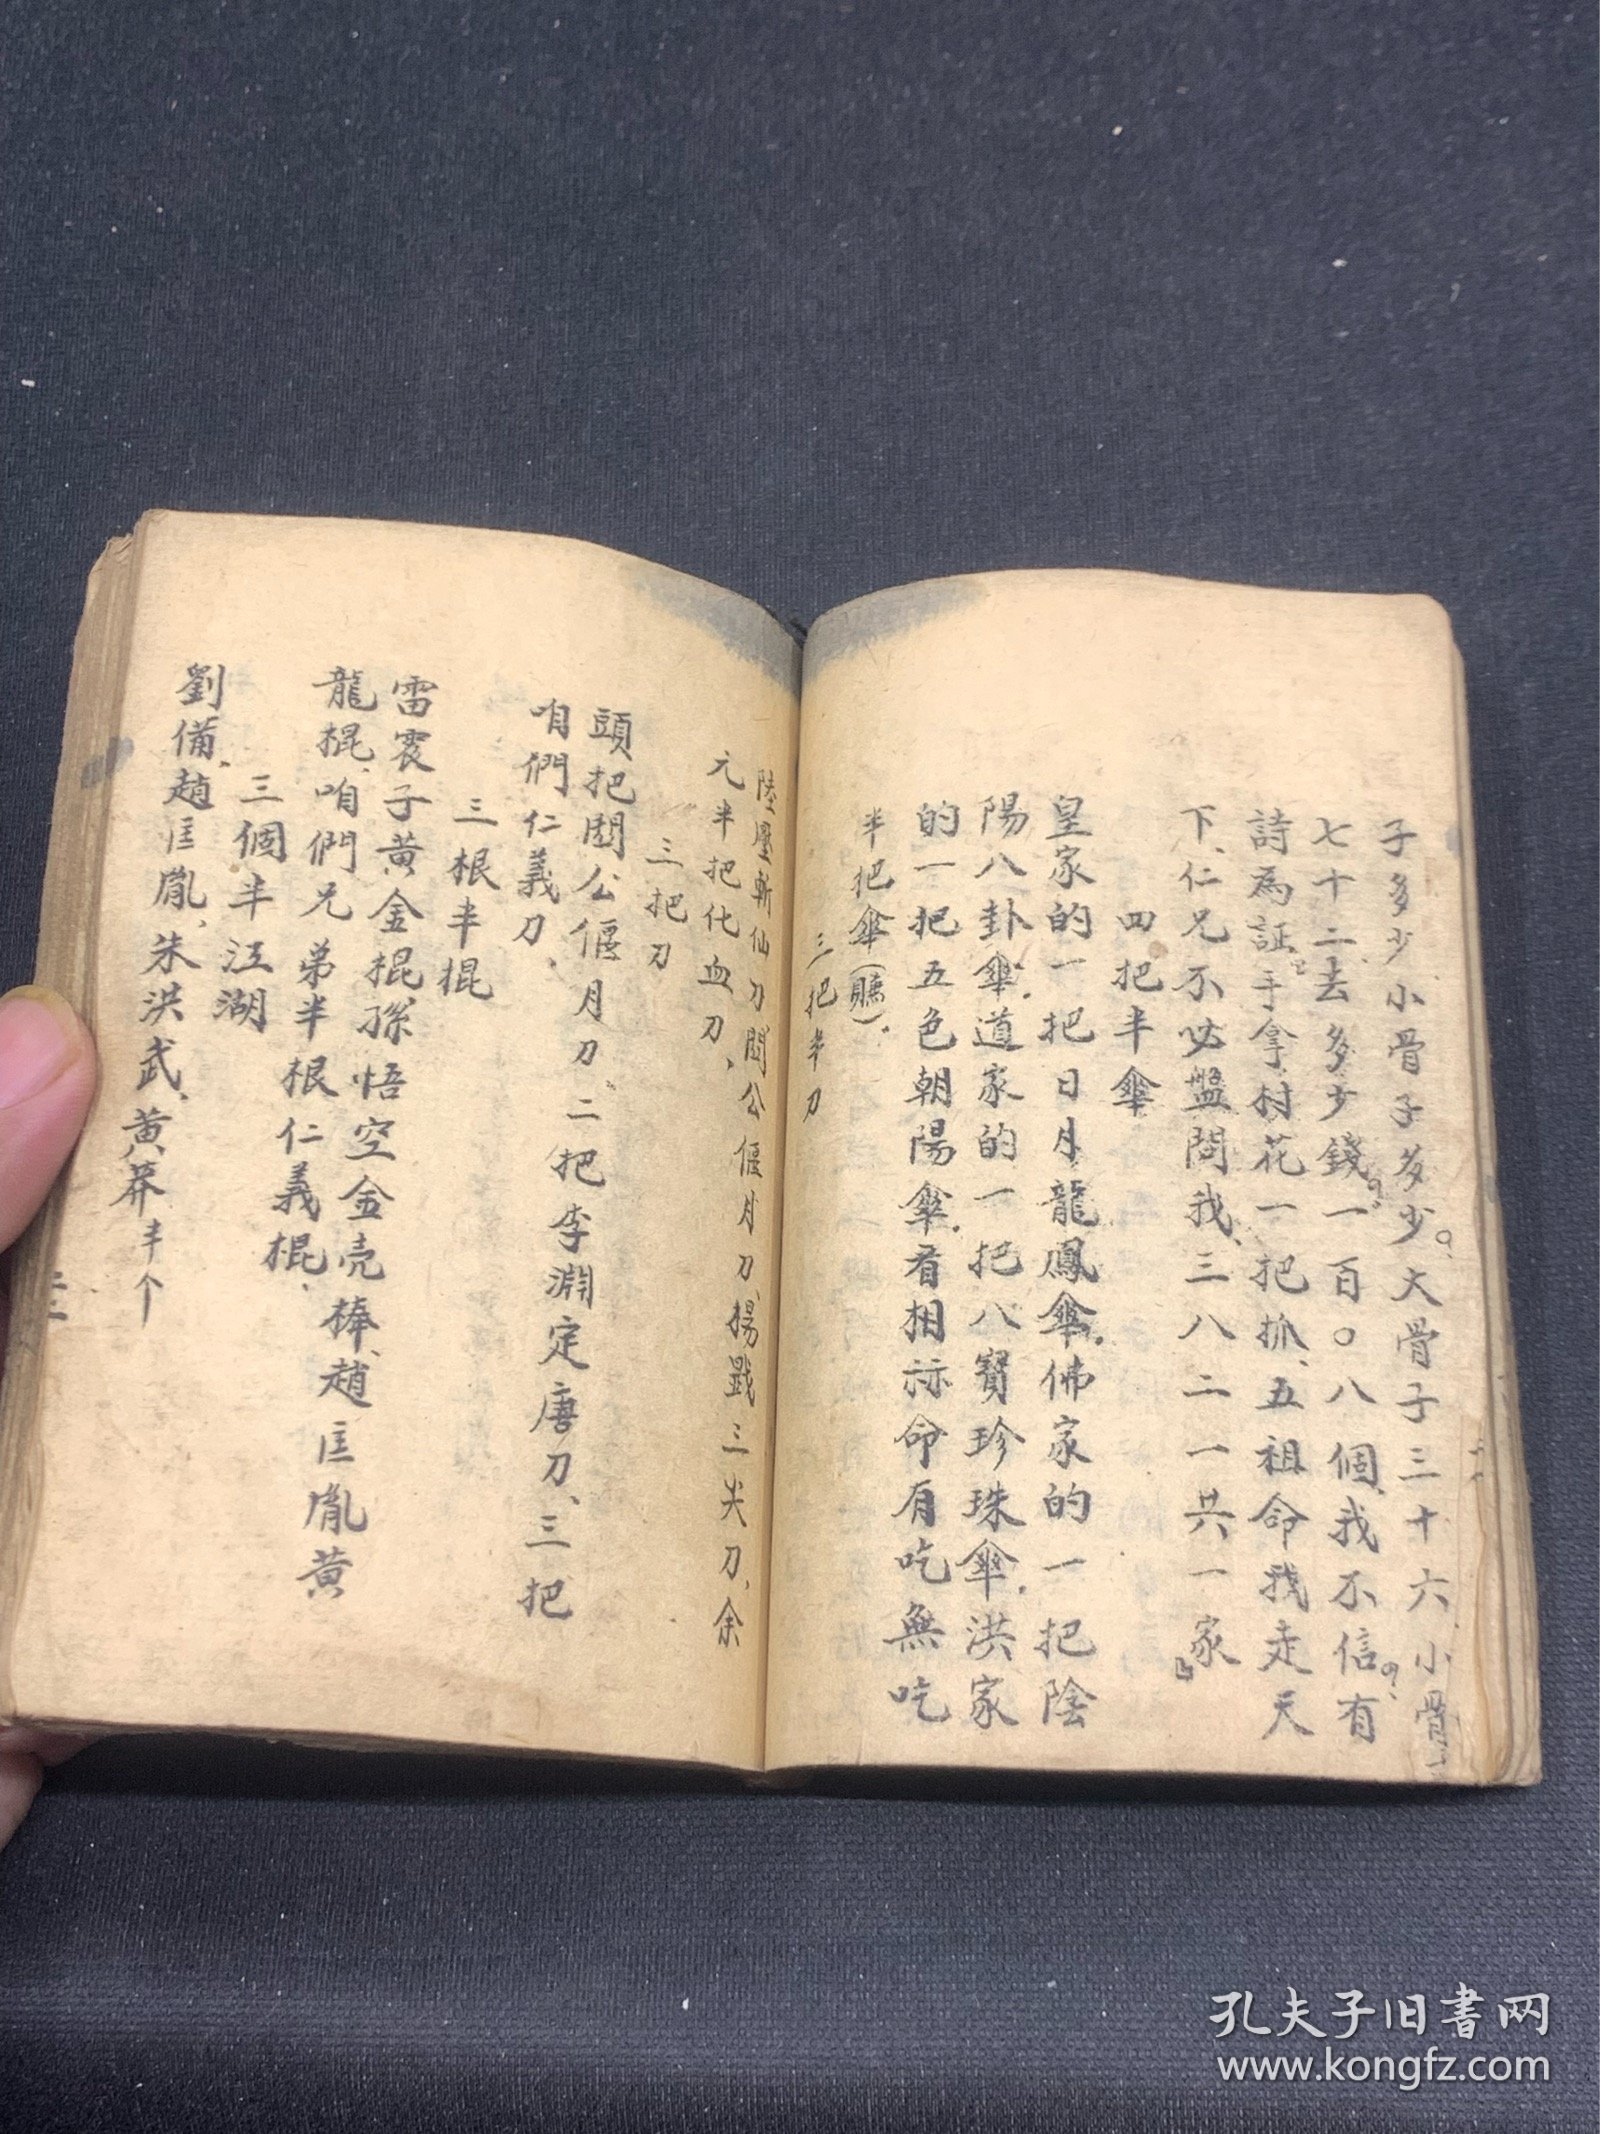 子多少小骨子多少。大骨子三十六小骨
七十二去多少錢。一百〇八個、我不信。有
詩為証手拿村花一把抓、五祖命我走天
下、仁兄不必盤問我、三八二一共一家』
四把半傘
皇家的一把日月龍鳳傘.佛家的一把陰
陽八卦傘.道家的一把八寶珍珠傘.洪家
的一把五色朝陽傘.看相祘命有吃無吃
半把傘（    ）.
三把半刀
陸壓斬仙刀関公偃月刀楊戩三尖刀、余
元半把化血刀、
三把刀
頭把関公偃月刀、二把李淵定唐刀、三把
咱們仁義刀、
三根半棍
雷震子黃金棍孫悟空金壳棒、趙匡胤黃
龍棍、咱們兄弟半根仁義棍、
三個半江湖
劉備、趙匡胤、朱洪武、黃莽半个
孔夫子旧书网
www.kongfz.com